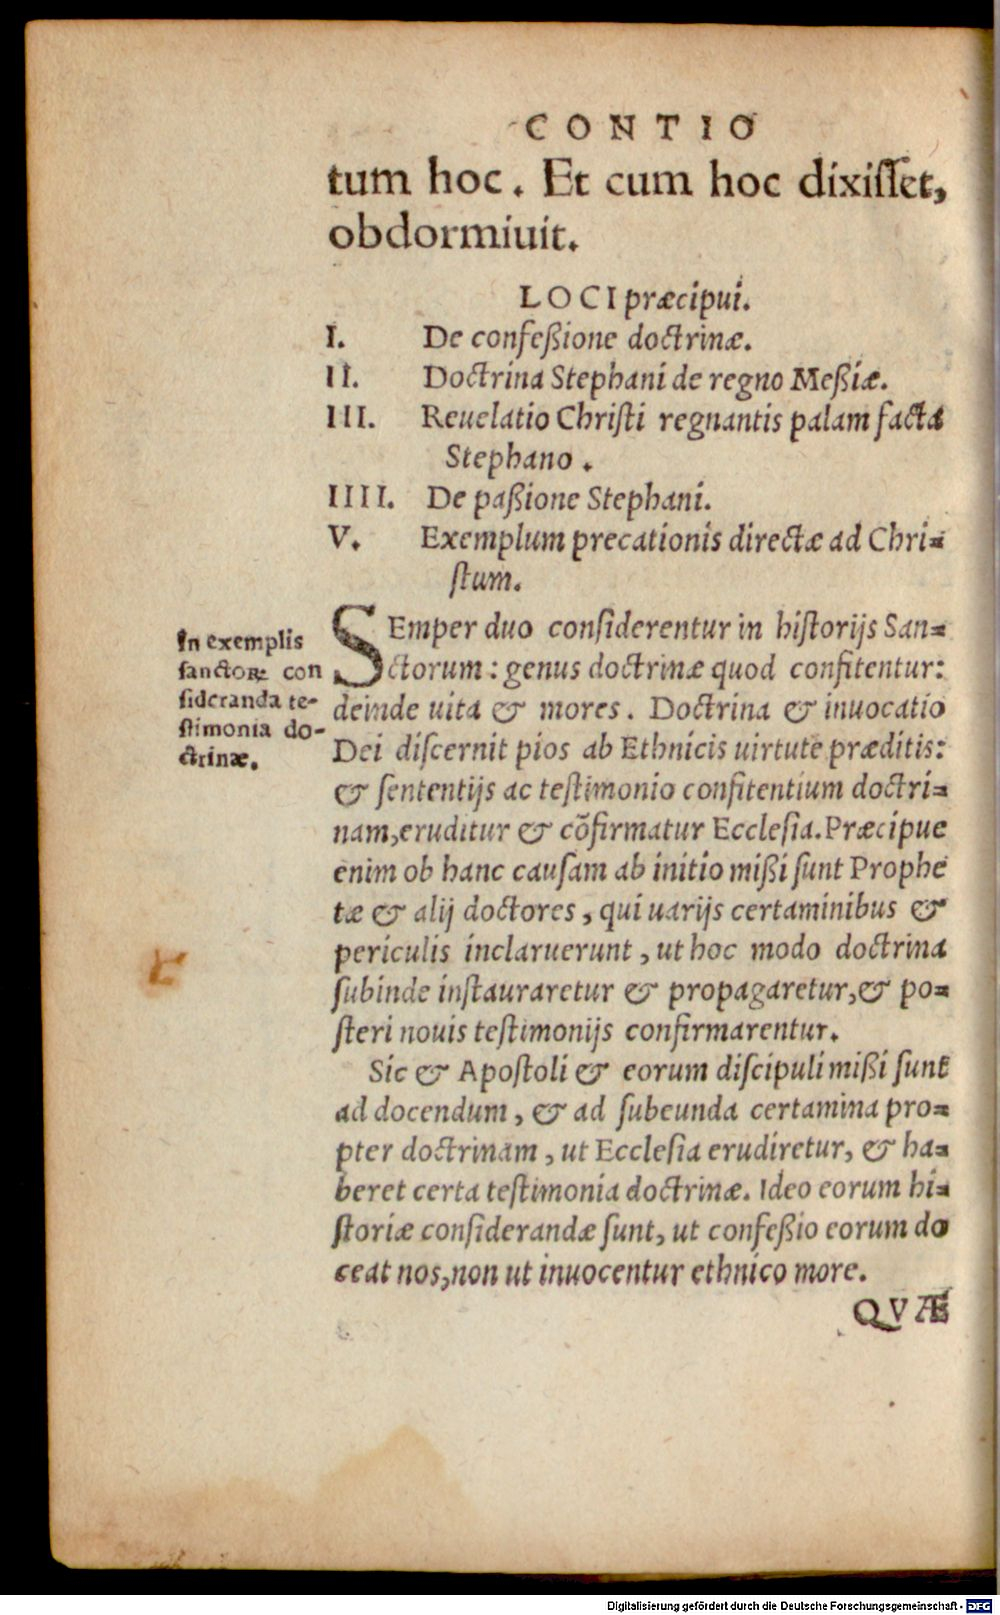 CONTIO
tum hoc. Et cum hoc dixiſſet,
obdormiuit.
LOCI præcipui.
I. De confeßione doctrinæ.
II. Doctrina Stephani de regno Meßiæ.
III. Reuelatio Chriſti regnantis palam facta
Stephano.
IIII. De paßione Stephani.
V. Exemplum precationis directæ ad Chri-
ſtum.
In exemplis
ſanctoꝝ con
ſideranda te-
ſtimonia do-
ctrinæ.
SEmper duo conſiderentur in hiſtorijs San-
ctorum: genus doctrinæ quod confitentur:
deinde uita & mores. Doctrina & inuocatio
Dei diſcernit pios ab Ethnicis uirtute præditis:
& ſententijs ac teſtimonio confitentium doctri-
nam, eruditur & cõfirmatur Eccleſia. Præcipue
enim ob hanc cauſam ab initio mißi ſunt Prophe
tæ & alij doctores, qui uarijs certaminibus &
periculis inclaruerunt, ut hoc modo doctrina
ſubinde inſtauraretur & propagaretur, & po-
ſteri nouis teſtimonijs confirmarentur.
Sic & Apoſtoli & eorum diſcipuli mißi ſunt
ad docendum, & ad ſubeunda certamina pro-
pter doctrinam, ut Eccleſia erudiretur, & ha-
beret certa teſtimonia doctrinæ. Ideo eorum hi-
ſtoriæ conſiderandæ ſunt, ut confeßio eorum do
ceat nos, non ut inuocentur ethnico more.
QVÆ
Digitalisierung gefördert durch die Deutsche Forschungsgemeinschaft - DFG